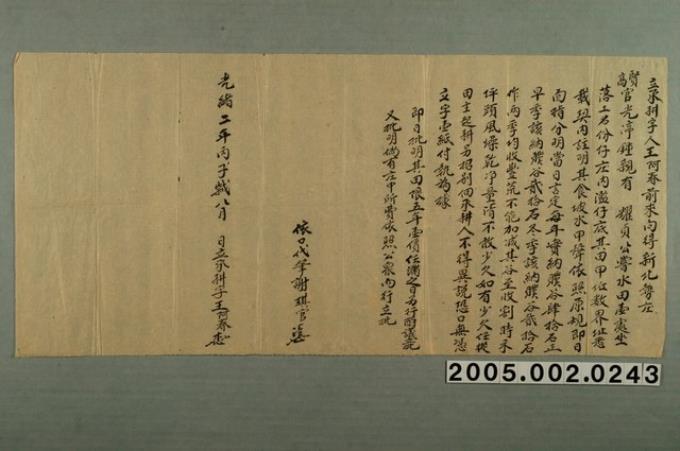 立承耕字人王阿春前來向得新北勢庄
賢
高官光滓鍾親有 耀貞公嘗水田壹處坐
落土名份仔庄內濫仔底其田甲位數界址悉
載契內註明其食坡水甲聲依照原規即日
面時分明當日言定每年實納濮谷肆拾石正
早季該納濮谷貳拾石冬季該納濮谷貳拾石
作兩季均收豐荒不能加减其谷至收割時禾
坪頭風燥乾净量清不敢少欠如有少欠任從
田主起耕另招別佃承耕人不得異說恐口無憑
立字壹紙付執為炤
即日批明其田限五年壹價任滿之日另行酌議批
又批明倘有庄中所費依照公眾向行立批
依口代筆謝琪官
光緒二年丙子歲八月 日立承耕字王阿春
2005.002.0243